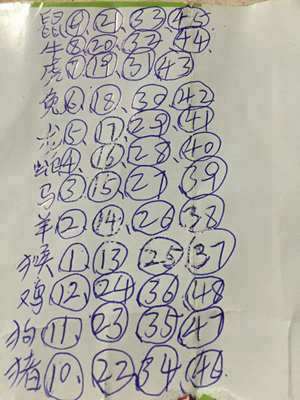 鼠 9 21 33 45
牛 8 20 32 44
虎 7 19 31 43
兔 6 18 30 42
龙 5 17 29 41
蛇 4 16 28 40
马 3 15 27 39
羊 2 14 26 38
猴 1 13 25 37
鸡 12 24 36 48
狗 11 23 35 47
猪 10 22 34 46